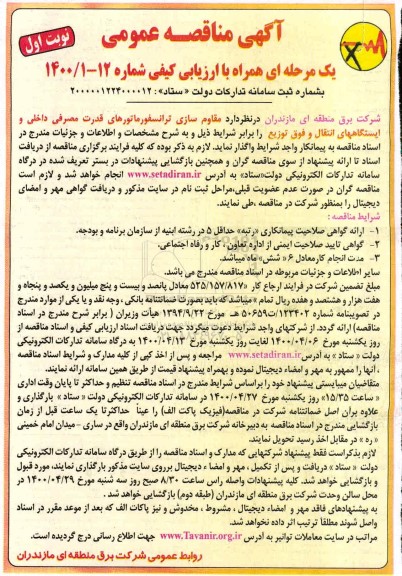 آگهی مناقصه عمومی
نوبت اول
یک مرحله ای همراه با ارزیابی کیفی شماره ۱۲-۱۴۰۰/۱
بشماره ثبت سامانه تدارکات دولت «ستاد»: ۲۰۰۰۰۰۱۲۲۴۰۰۰۰۱۲
شرکت برق منطقه ای مازندران درنظردارد مقاوم سازی ترانسفورماتورهای قدرت مصرفی داخلی و
ایستگاههای انتقال و فوق توزیع را برابر شرایط ذیل و به شرح مشخصات و اطلاعات و جزئیات مندرج در
اسناد مناقصه به پیمانکار واجد شرایط واگذار نماید. لازم به ذکر بوده که کلیه فرایند برگزاری مناقصه از دریافت
اسناد تا ارائه پیشنهاد از سوی مناقصه گران و همچنین بازگشایی پیشنهادات در بستر تعریف شده در درگاه
سامانه تدارکات الکترونیکی دولت«ستاد» به آدرس www.setadiran.ir انجام خواهد شد و لازم است
مناقصه گران در صورت عدم عضویت قبلی،مراحل ثبت نام در سایت مذکور و دریافت گواهی مهر و امضای
دیجیتال را بمنظور شرکت در مناقصه ،طی نمایند.
شرایط مناقصه :
۱- ارائه گواهی صلاحیت پیمانکاری «رتبه» حداقل ۵ در رشته ابنیه از سازمان برنامه و بودجه.
۲- گواهی تایید صلاحیت ایمنی از اداره تعاون ، کار و رفاه اجتماعی.
۳- مدت انجام کار معادل ۶ «شش» ماه میباشد.
سایر اطلاعات و جزئیات مربوطه در اسناد مناقصه مندرج می باشد.
مبلغ تضمین شرکت در فرایند ارجاع کار «۵۲۵/۱۵۷/۸۱۷» معادل پانصد و بیست و پنج میلیون و یکصد و پنجاه و
هفت هزار و هشتصد و هفده ریال تمام » میباشد که باید بصورت ضمانتنامه بانکی ، وجه نقد و یا یکی از موارد مندرج
در تصویبنامه شماره ۱۲۳۴۰۲/ت۵۰۶۵۹هـ مورخ ۱۳۹۴/۹/۲۲ هیأت وزیران ( برابر شرح مندرج در اسناد
مناقصه) ارائه گردد. از شرکتهای واجد شرایط دعوت میگردد جهت دریافت اسناد ارزیابی کیفی و اسناد مناقصه از
روز یکشنبه مورخ ۱۴۰۰/۰۴/۰۶ لغایت روز یکشنبه مورخ ۱۴۰۰/۰۴/۱۳ به درگاه سامانه تدارکات الکترونیکی
دولت « ستاد » به آدرس www.setadiran.ir مراجعه و پس از اخذ کپی از کلیه مدارک و شرایط اسناد مناقصه
، آنها را ممهور به مهر و امضاء دیجیتال نموده و بهمراه پیشنهاد قیمت از طریق همین سامانه ارائه نمایند.
متقاضیان میبایستی پیشنهاد خود را براساس شرایط مندرج در اسناد مناقصه تنظیم و حداکثر تا پایان وقت اداری
« ساعت ۱۵/۳۵» روز یکشنبه مورخ ۱۴۰۰/۰۴/۲۷ در سامانه تدارکات الکترونیکی دولت « ستاد » بارگذاری و
علاوه بران اصل ضمانتنامه شرکت در مناقصه(فیزیک پاکت الف) را عیناً حداکثر تا یک ساعت قبل از زمان
بازگشایی مندرج در اسناد مناقصه به دبیرخانه شرکت برق منطقه ای مازندران واقع در ساری -میدان امام خمینی
« ره » در مقابل اخذ رسید تحویل نمایند.
لازم بذکر است فقط پیشنهاد شرکتهایی که مدارک و اسناد مناقصه را از طریق درگاه سامانه تدارکات الکترونیکی
دولت « ستاد » دریافت و پس از تکمیل ، مهر و امضاء دیجیتال برروی سایت مذکور بارگذاری نمایند، مورد قبول
و بازگشایی خواهد شد. کلیه پیشنهادات واصله راس ساعت ۸/۳۰ صبح روز سه شنبه مورخ ۱۴۰۰/۰۴/۲۹ در
محل سالن وحدت شرکت برق منطقه ای مازندران (طبقه دوم) بازگشایی خواهد شد .
به پیشنهادهای فاقد مهر و امضاء دیجیتال ، مشروط ، مخدوش و نیز پاکات الف که بعد از موعد مقرر در اسناد
واصل شوند مطلقاً ترتیب اثر داده نخواهد شد.
مراتب در سایت معاملات توانیر به آدرس www.Tavanir.org.ir جهت اطلاع رسانی درج گردیده است.
روابط عمومی شرکت برق منطقه ای مازندران